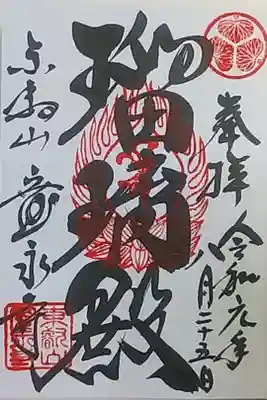 奉拝
令和元年
八月二十五日
瑠璃殿
東叡山 寛永寺